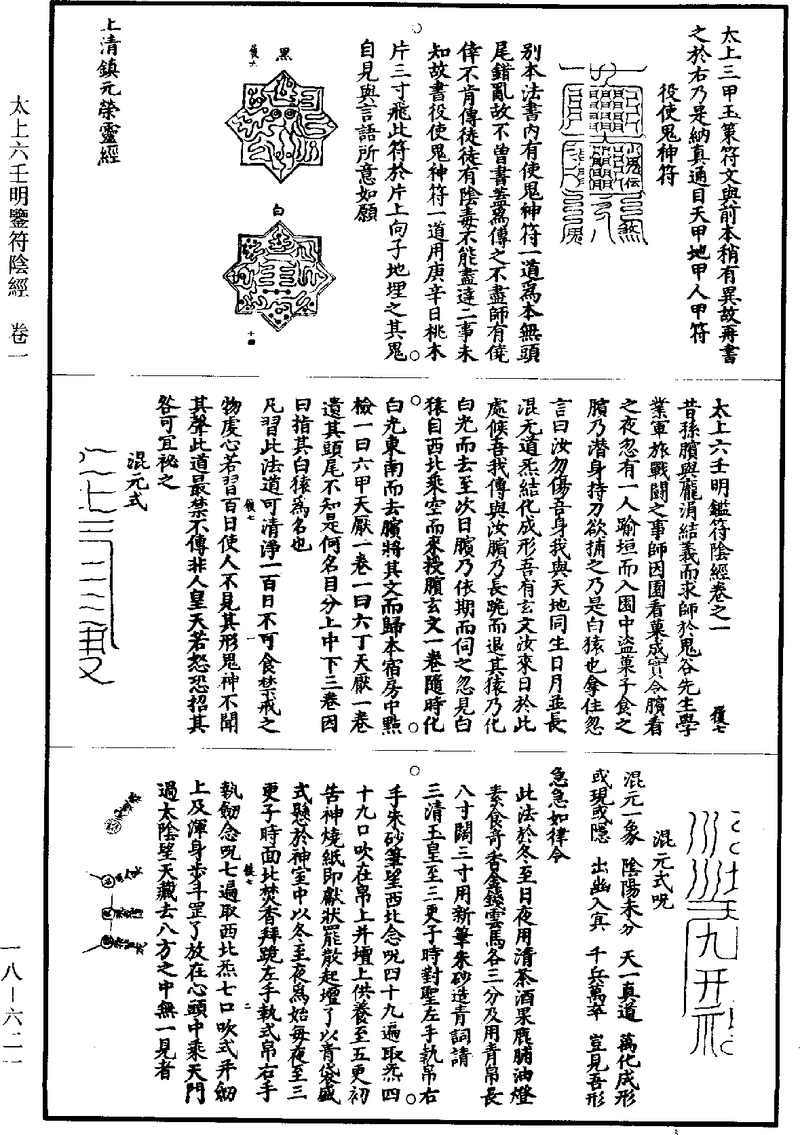 太上三甲玉策符文與前本稍有異故再書
之於右乃是納真通目天甲地甲人甲符
役使鬼神符
別本法書內有使鬼神符一道爲本無頭
尾錯亂故不曾書蓋爲傳之不盡師有僥
倖不肯傳徒徒有陰毒不能盡達二事未
知故書役使鬼神符一道用庚辛日桃木
片三寸飛此符於片上向子地埋之其鬼
自見與言語所意如願
黑
白
上清鎮元榮靈經
太上六壬明鑑符陰經卷之一
昔孫臏與龐涓結義而求師於鬼谷先生學
業軍旅戰鬪之事師因園看菓成實令臏看
之夜忽有一人踰垣而入園中盜菓子食之
臏乃潜身持刀欲捕之乃是白猿也拿住忽
言曰汝勿傷吾身我與天地同生日月並長
混元道炁結化成形吾有玄文汝來日於此
處候吾我傳與汝臏乃長跪而退其猿乃化
白光而去至次日臏乃依期而伺之忽見白
猿自西北乘空而來授臏玄文一卷隨時化
白光東南而去臏將其文而歸本宿房中點
檢一曰六甲天厭一卷一曰六丁天厭一卷
遺其頭尾不知是何名目分上中下三卷因
曰指其白猿爲名也
凡習此法道可清淨一百日不可食禁戒之
物虔心若習百日使人不見其形鬼神不聞
其聲此道最禁不傳非人皇天若怒恐招其
咎可宜祕之
混元式
混元式呪
混元一象 陰陽未分 天一真道 萬化成形
或現或隱 出幽入冥 千兵萬卒 豈見吾形
急急如律令
此法於冬至日夜用清茶酒果鹿脯油燈
素食奇香金錢雲馬各三分及用青帛長
八寸闊三寸用新筆朱砂造青詞請
三清玉皇至三更子時對聖左手執帛右
手朱砂筆望西北念呪四十九遍取炁四
十九口吹在帛上并壇上供養至五更初
告神燒紙即獻狀罷散起壇了以青袋盛
式懸於神室中以冬至夜爲始每夜至三
更子時面北焚香拜跪左手執式帛右手
執劔念呪七遍取西北炁七口吹式并劔
上及渾身步斗罡了放在心頭中乘天門
過太陰望天藏去八方之中無一見者
太上六壬明鑒符陰經 卷一
一八—六二一